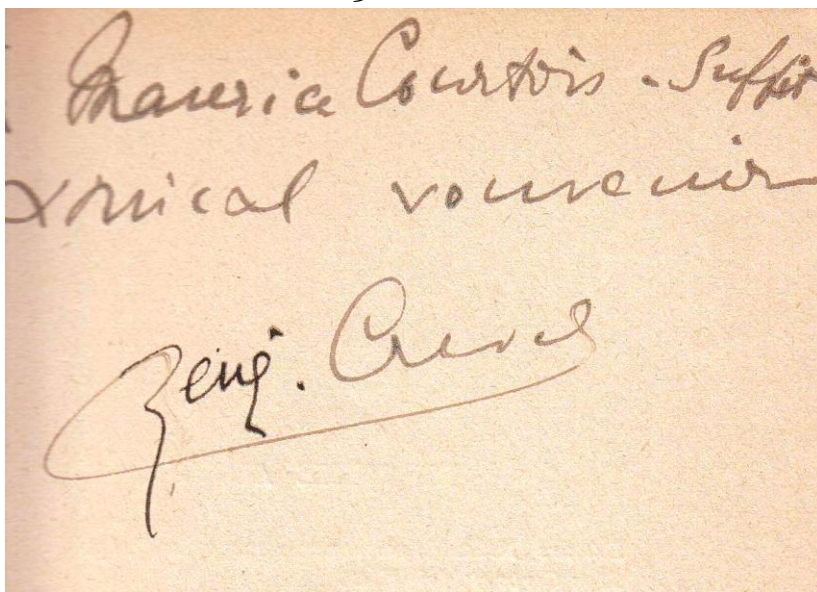 Maurice Courtois-Suffit
amical souvenir
Benj. Crevel